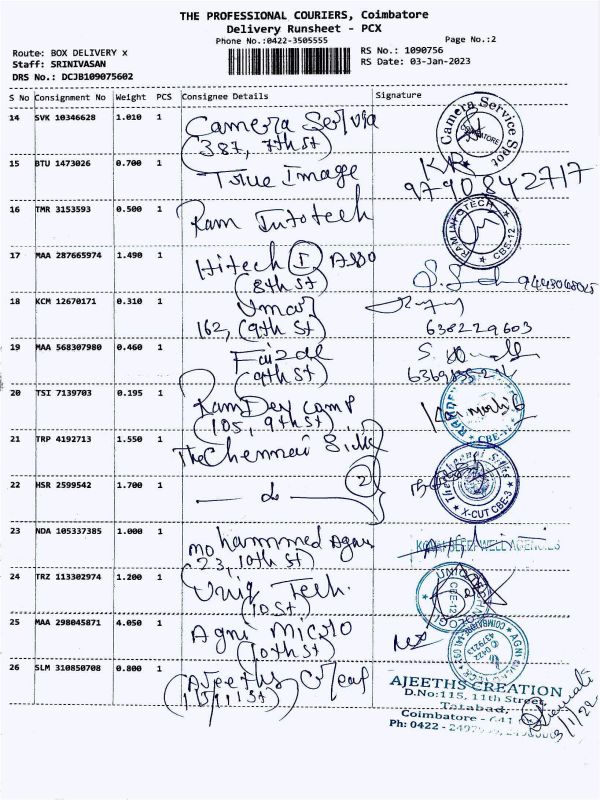 THE PROFESSIONAL COURIERS, Coimbatore
Delivery Runsheet - PCX
Phone No.:0422-3505555
Page No.:2
Route: BOX DELIVERY x
Staff: SRINIVASAN
DRS No.: DCJB109075602
RS No.: 1090756
RS Date: 03-Jan-2023
S No Consignment No Weight PCS Consignee Details Signature
14 SVK 10346628 1.010 1 Camera Service
(387, 7th St)
Camera Service Spot
COIMBATORE
15 BTU 1473026 0.700 1 True Image
KR
9790842717
16 TMR 3153593 0.500 1 Ram Infotech
RAM INFOTECH
CBE-12
17 MAA 287665974 1.490 1 Hitech I Asso
(8th St)
18 KCM 12670171 0.310 1 Umar
162, (9th St)
638229603
19 MAA 568307980 0.460 1 Faizal
(9th St)
20 TSI 7139703 0.195 1 Ram Dev Comp
(105, 9th St)
21 TRP 4192713 1.550 1 The Chennai Silks
22 HSR 2599542 1.700 1 do 2
The Chennai Silks
X-CUT CBE-3
23 NDA 105337385 1.000 1 Mohammed Agni
(23, 10th St)
24 TRZ 113302974 1.200 1 Uniq Tech.
(10 St)
CBE-12
25 MAA 298045871 4.050 1 Agni Micro
(10th St)
26 SLM 310850708 0.800 1 Ajeeths Creat
AJEETHS CREATION
D.No:115, 11th Street,
Tatabad,
Coimbatore - 641
Ph: 0422 -
3/1/22